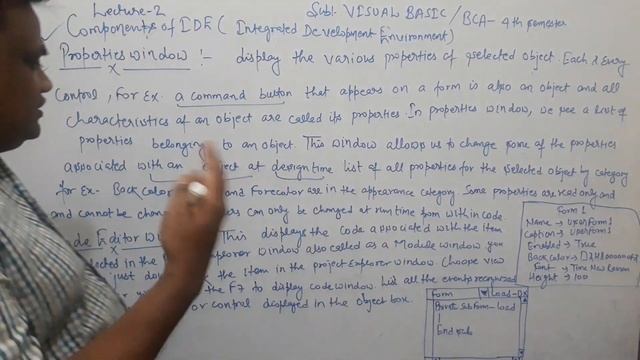 Lecture-2
Sub:- VISUAL BASIC / BCA- 4th semester
Components of IDE ( Integrated Development Environment)
Properties window :- display the various properties of selected object. Each & Every
Control, For Ex. a command button that appears on a form is also an object and all
characteristics of an object are called its properties. In properties window, we see a list of
properties belonging to an object. This window allows us to change some of the properties
associated with an object at design time list of all properties for the selected object by category
for Ex- Back color and Forecolor are in the appearance category. Some properties are read only and
and cannot be can only be changed at run time from with in code.
Editor This displays the code associated with the item
in the window also called as a Module window you
just the item in the project Explorer window. Choose view
the F7 to display code window. List all the events recognized
or control displayed in the object box.
Form 1
Name → userform1
Caption → userform1
Enabled → True
Backcolor →
Font → Time New Roman
Height → 100
Form
Load
Private Sub Form_load
End sub